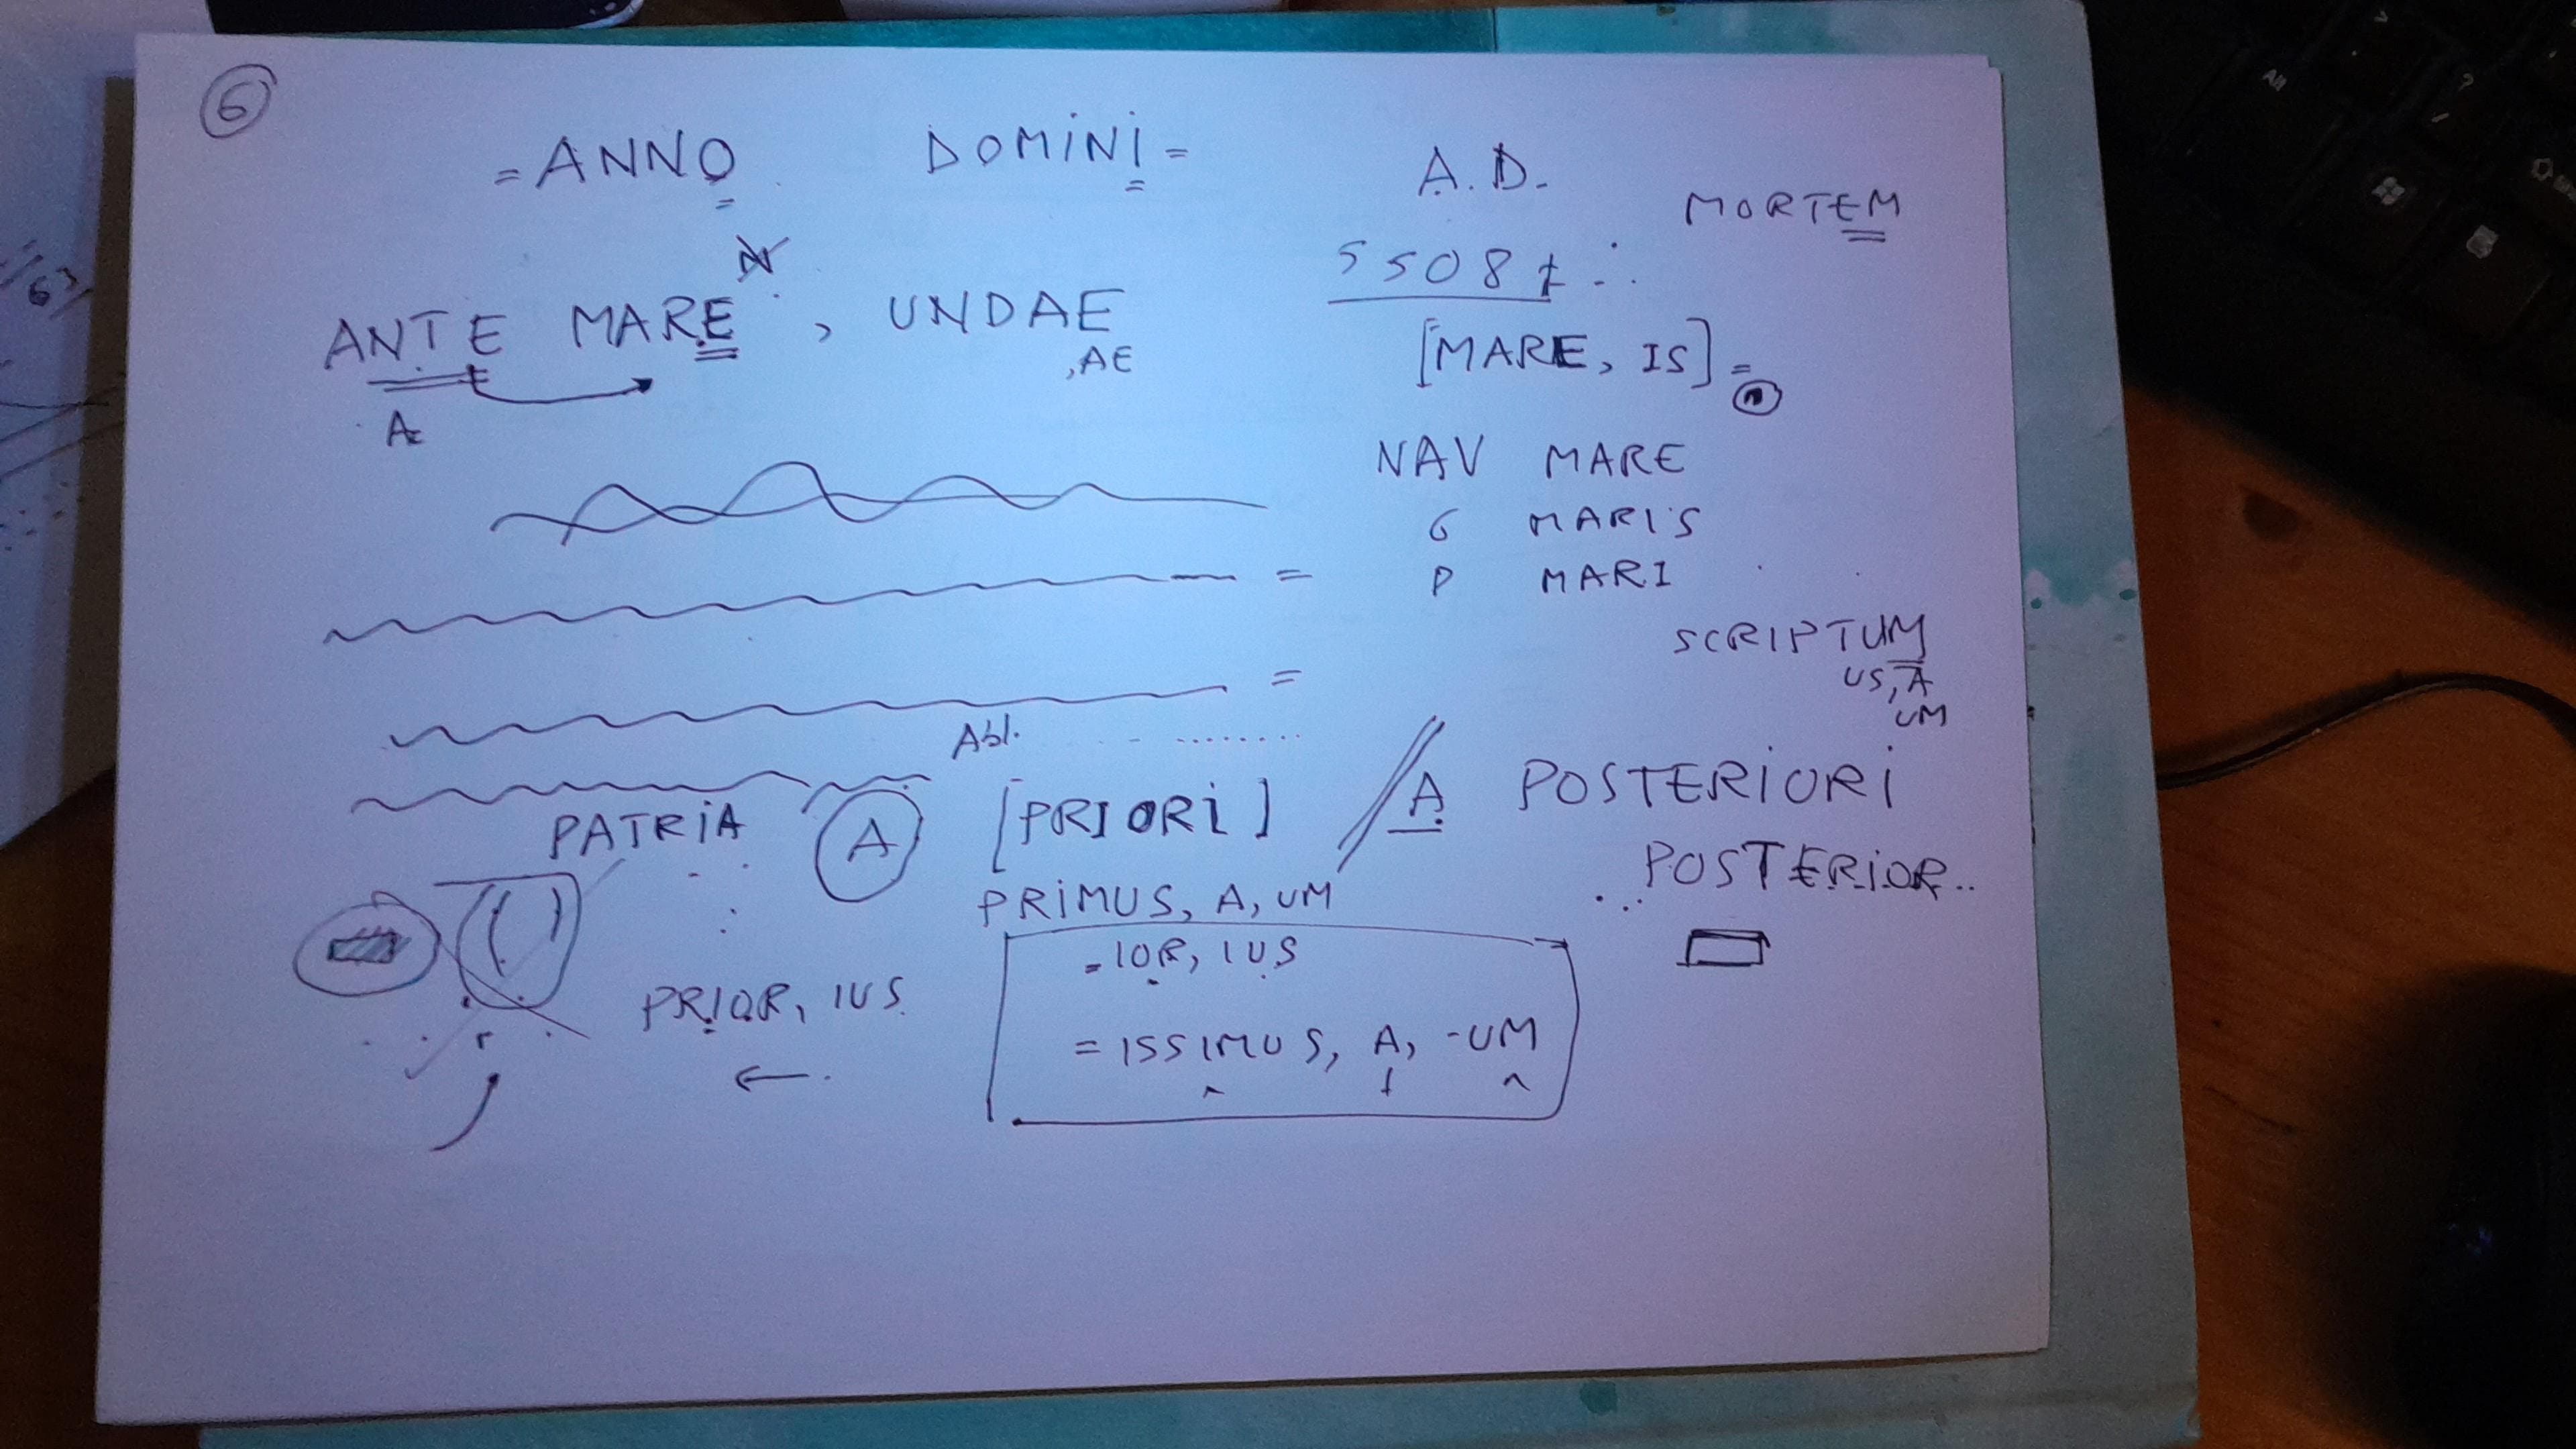 6
= ANNO DOMINI = A.D.
MORTEM
N
5508
ANTE MARE, UNDAE
, AE
[MARE, IS] =
n
NAV MARE
G MARIS
P MARI
=
SCRIPTUM
US, A
UM
=
Abl.
PATRIA A [PRIORI] A POSTERIORI
PRIMUS, A, UM POSTERIOR..
PRIOR, IUS
= IOR, IUS
= ISSIMUS, A, -UM